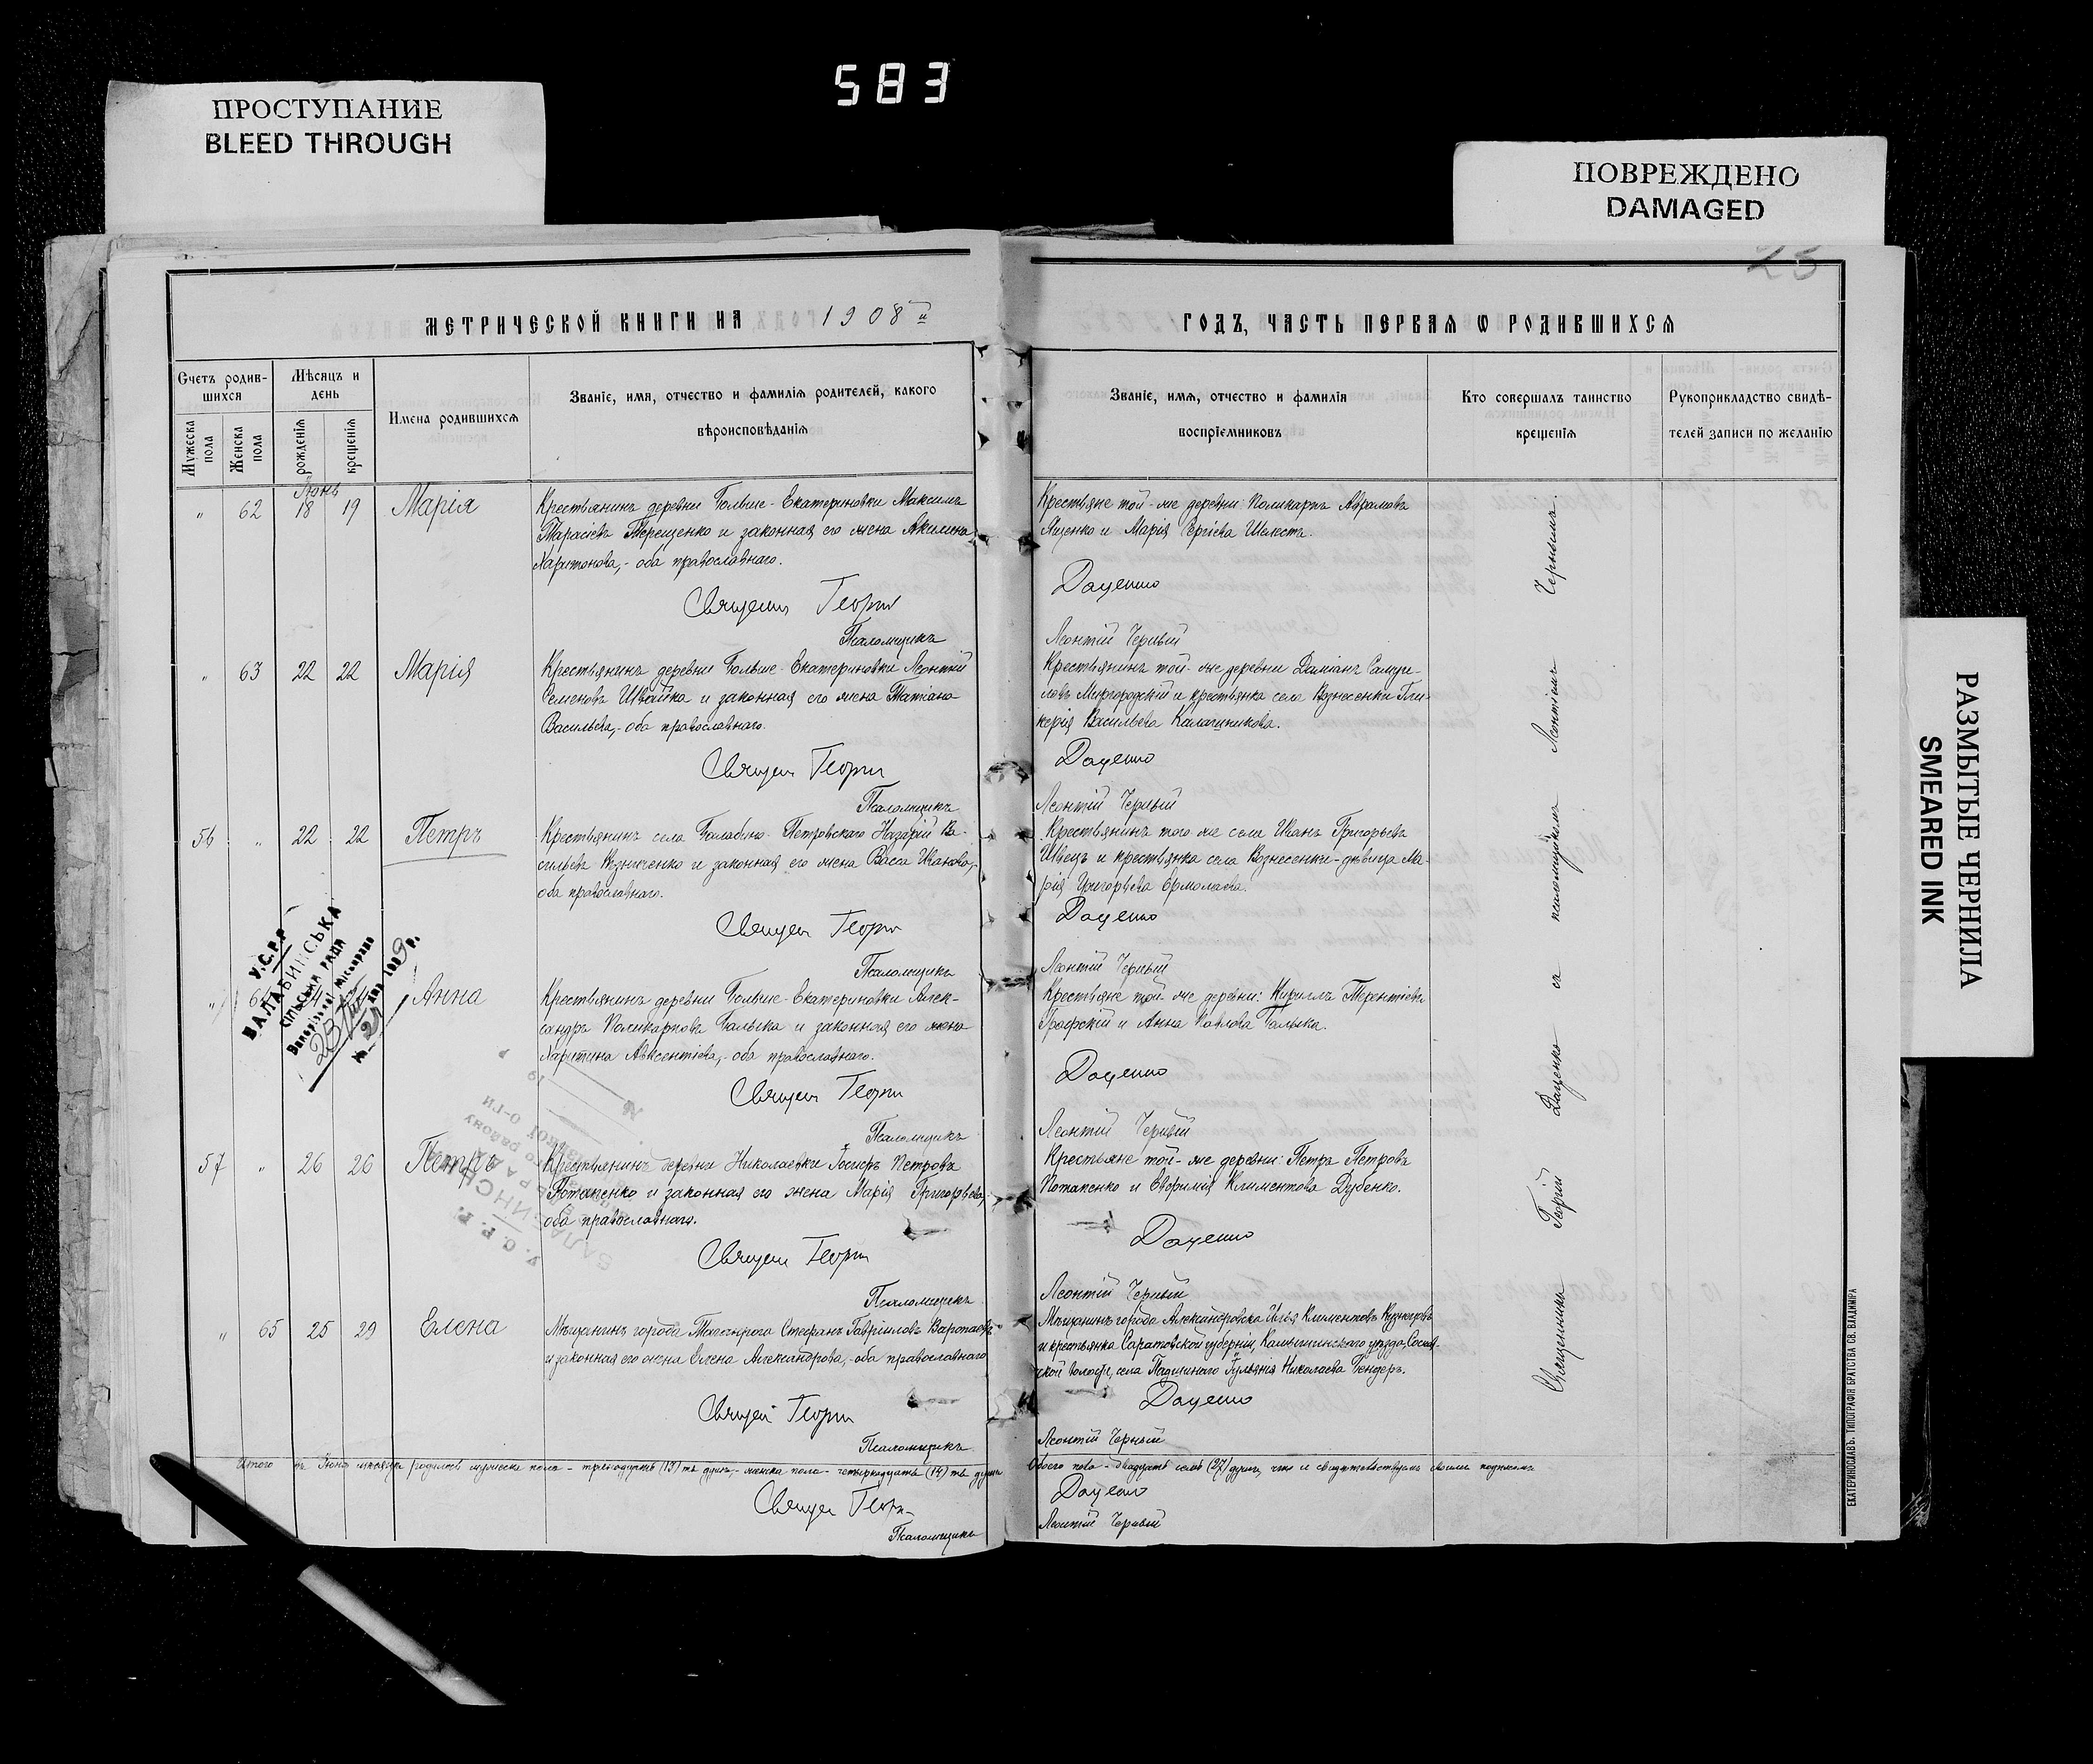 583
ПРОСТУПАНИЕ
BLEED THROUGH
ПОВРЕЖДЕНО
DAMAGED
РАЗМЫТЫЕ ЧЕРНИЛА
SMEARED INK
23
МЕТРИЧЕСКОЙ КНИГИ НА 1908й
ГОДЪ, ЧАСТЬ ПЕРВАЯ Ѡ РОДИВШИХСЯ
Счетъ родив-
шихся
Мужеска пола
Женска пола
Мѣсяцъ и
день
рожденія
крещенія
Имена родившихся
Званіе, имя, отчество и фамилія родителей, какого
вѣроисповѣданія
Званіе, имя, отчество и фамилія
воспріемниковъ
Кто совершалъ таинство
крещенія
Рукоприкладство свидѣ-
телей записи по желанію
Іюнь
" 62 18 19 Марія
Крестьянинъ деревни Больше-Екатериновки Максимъ
Тарасіевъ Терещенко и законная его жена Акилина
Харитонова,- оба православнаго.
Крестьяне той-же деревни: Поликарпъ Аврамовъ
Яценко и Марія Сергіева Шелестъ.
Священ Георгій
Даценко
Псаломщикъ
Леонтій Черный
" 63 22 22 Марія
Крестьянинъ деревни Больше-Екатериновки Леонтій
Семеновъ Швайка и законная его жена Татіана
Васильева,- оба православнаго.
Крестьянинъ той-же деревни Даміанъ Самуи-
ловъ Миргородскій и крестьянка села Вознесенки Гли-
керія Васильева Калашникова.
Священ Георгій
Даценко
Псаломщикъ
Леонтій Черный
56 " 22 22 Петръ
Крестьянинъ села Балабино-Петровскаго Назарій Ва-
сильевъ Возниченко и законная его жена Васса Иванова,-
оба православнаго.
Крестьянинъ того-же села Иванъ Григорьевъ
Швецъ и крестьянка села Вознесенки-дѣвица Ма-
рія Григорьева Ермолаева.
Священ Георгій
Даценко
Псаломщикъ
Леонтій Черный
У.С.Р.Р.
БАЛАБИНСЬКА
СІЛЬСЬКА РАДА
" Анна
Крестьянинъ деревни Больше-Екатериновки Алек-
сандръ Поликарповъ Галька и законная его жена
Харитина Авксентіева,- оба православнаго.
Крестьяне той-же деревни: Кириллъ Терентіевъ
Графскій и Анна Павлова Галька.
Священ Георгій
Даценко
Псаломщикъ
Леонтій Черный
57 " 26 26 Петръ
Крестьянинъ деревни Николаевки Петровъ
Потапенко и законная его жена Марія Григорьева,
оба православнаго.
Крестьяне той-же деревни: Петръ Петровъ
Потапенко и Евфимія Климентова Дубенко.
Священ Георгій
Даценко
Псаломщикъ
Леонтій Черный
" 65 25 29 Елена
Мѣщанинъ города Таганрога Стефанъ Гавріиловъ
и законная его жена Елена Александрова,- оба православнаго
Мѣщанинъ города Александровска Илья Климентовъ
и крестьянка Саратовской губерніи, Камышинскаго уѣзда,
ской волости, села Николаева Бендеръ.
Священ Георгій
Даценко
Псаломщикъ
Леонтій Черный
Итого въ Іюнѣ мѣсяцѣ родилось мужеска пола - тринадцать (13) ть душъ,- женска пола - четырнадцать (14) ть душъ
Обоего пола - двадцать семь (27) душъ, что и свидѣтельствуемъ своимъ подписомъ
Священ Георгій
Даценко
Псаломщикъ
Леонтій Черный
Священникъ Георгій Даценко съ псаломщикомъ Леонтіемъ Чернымъ.
ЕКАТЕРИНОСЛАВЪ. ТИПОГРАФІЯ БРАТСТВА СВ. ВЛАДИМІРА